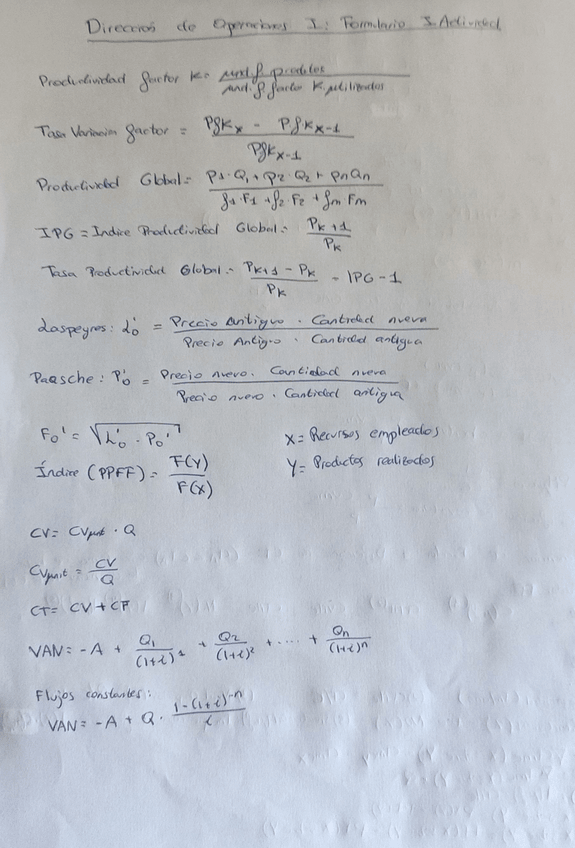 Dirección de Operaciones I: Formulario I Actividad
Productividad factor K = und. f. prodctos / und. f. factor K utilizados
Tasa Variación factor = (PfK_x - PfK_x-1) / PfK_x-1
Productividad Global = (p1·Q1 + p2·Q2 + pnQn) / (f1·F1 + f2·F2 + fm·Fm)
IPG = Indice Productividad Global = P_K+1 / P_K
Tasa Productividad Global = (P_K+1 - P_K) / P_K = IPG - 1
Laspeyres: L₀' = Precio Antiguo . Cantidad nueva / Precio Antiguo . Cantidad antigua
Paasche: P₀' = Precio nuevo . Cantidad nueva / Precio nuevo . Cantidad antigua
F₀' = √(L₀' · P₀')
X = Recursos empleados
Índice (PPFF) = F(Y) / F(X)
Y = Productos realizados
CV = CVunit · Q
CVunit = CV / Q
CT = CV + CF
VAN = -A + Q1/(1+i)¹ + Q2/(1+i)² + .... + Qn/(1+i)ⁿ
Flujos constantes:
VAN = -A + Q · (1-(1+i)⁻ⁿ) / i